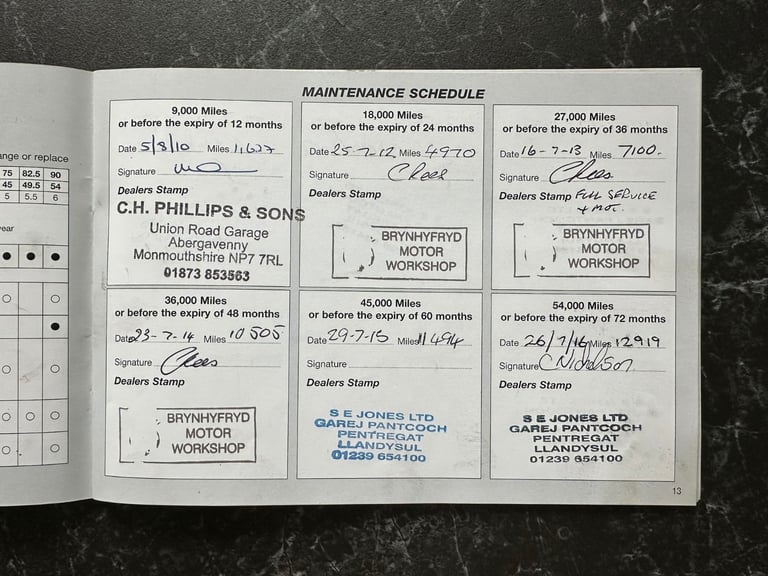 ange or replace
75 82.5 90
45 49.5 54
5 5.5 6
year
MAINTENANCE SCHEDULE
9,000 Miles
or before the expiry of 12 months
Date 5/8/10 Miles
Signature
Dealers Stamp
C.H. PHILLIPS & SONS
Union Road Garage
Abergavenny
Monmouthshire NP7 7RL
01873 853563
18,000 Miles
or before the expiry of 24 months
Date 25-7-12 Miles 4970
Signature CRees
Dealers Stamp
BRYNHYFRYD
MOTOR
WORKSHOP
27,000 Miles
or before the expiry of 36 months
Date 16-7-13 Miles 7100.
Signature CRees
Dealers Stamp FULL SERVICE
+ MOT.
BRYNHYFRYD
MOTOR
WORKSHOP
36,000 Miles
or before the expiry of 48 months
Date 23-7-14 Miles 10505
Signature CRees
Dealers Stamp
BRYNHYFRYD
MOTOR
WORKSHOP
45,000 Miles
or before the expiry of 60 months
Date 29-7-15 Miles 11494
Signature
Dealers Stamp
S E JONES LTD
GAREJ PANTCOCH
PENTREGAT
LLANDYSUL
01239 654100
54,000 Miles
or before the expiry of 72 months
Date 26/7/16 Miles 12919
Signature C Nicholson
Dealers Stamp
S E JONES LTD
GAREJ PANTCOCH
PENTREGAT
LLANDYSUL
01239 654100
13